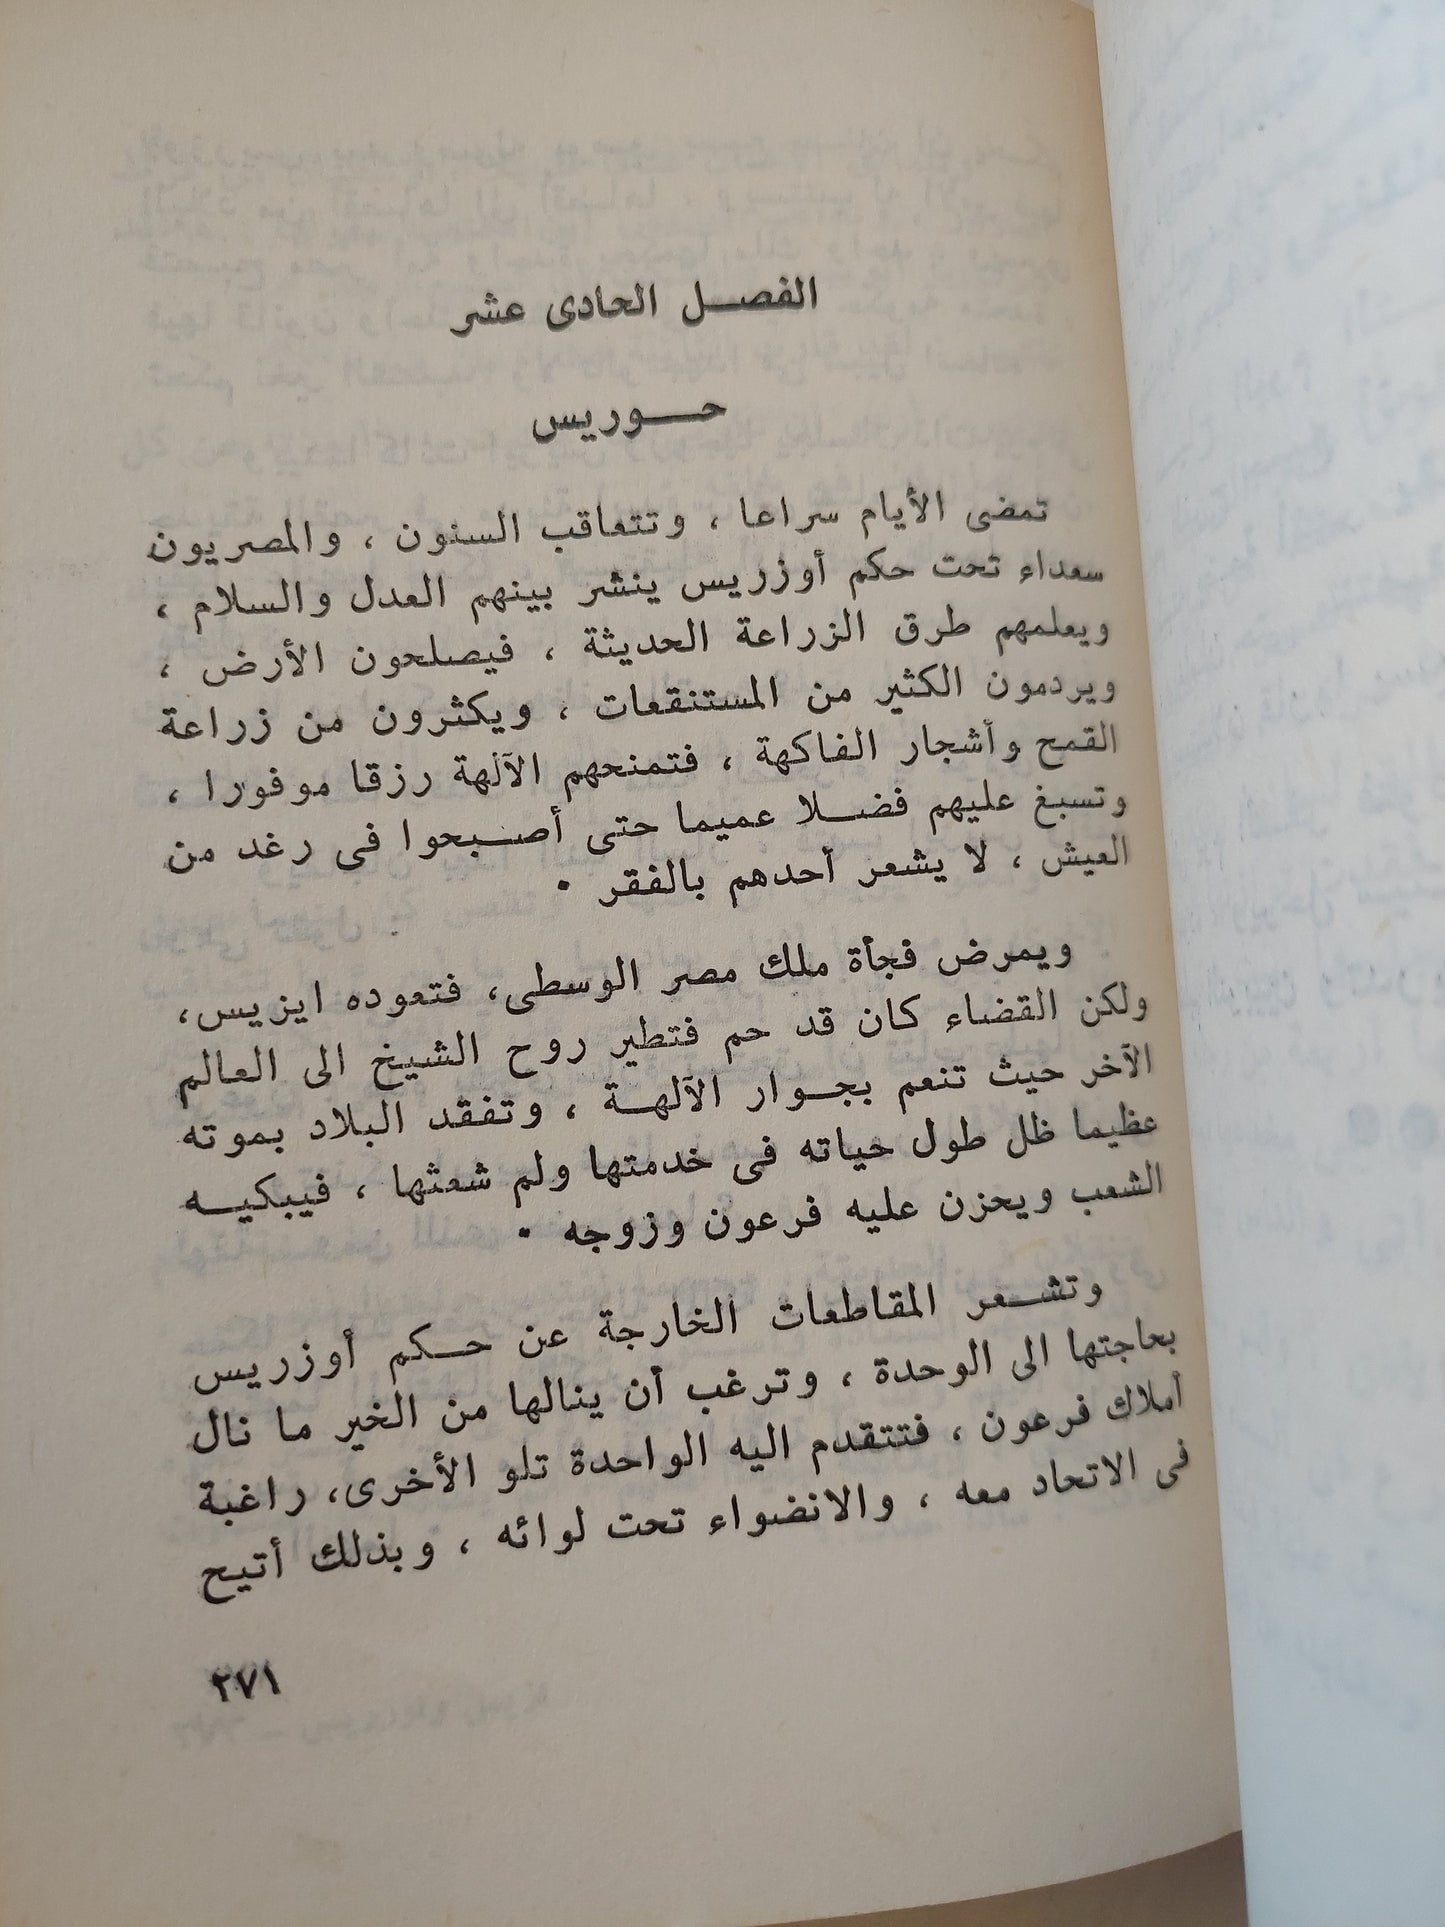 الفصل الحادى عشر
حوريس
تمضى الأيام سراعا ، وتتعاقب السنون ، والمصريون
سعداء تحت حكم أوزريس ينشر بينهم العدل والسلام ،
ويعلمهم طرق الزراعة الحديثة ، فيصلحون الأرض ،
ويردمون الكثير من المستنقعات ، ويكثرون من زراعة
القمح وأشجار الفاكهة ، فتمنحهم الآلهة رزقا موفورا ،
وتسبغ عليهم فضلا عميما حتى أصبحوا فى رغد من
العيش ، لا يشعر أحدهم بالفقر ٠
ويمرض فجأة ملك مصر الوسطى، فتعوده ايزيس،
ولكن القضاء كان قد حم فتطير روح الشيخ الى العالم
الآخر حيث تنعم بجوار الآلهة ، وتفقد البلاد بموته
عظيما ظل طول حياته فى خدمتها ولم شعثها ، فيبكيه
الشعب ويحزن عليه فرعون وزوجه ٠
وتشعر المقاطعات الخارجة عن حكم أوزريس
بحاجتها الى الوحدة ، وترغب أن ينالها من الخير ما نال
أملاك فرعون ، فتتقدم اليه الواحدة تلو الأخرى، راغبة
فى الاتحاد معه ، والانضواء تحت لوائه ، وبذلك أتيح
٢٧١